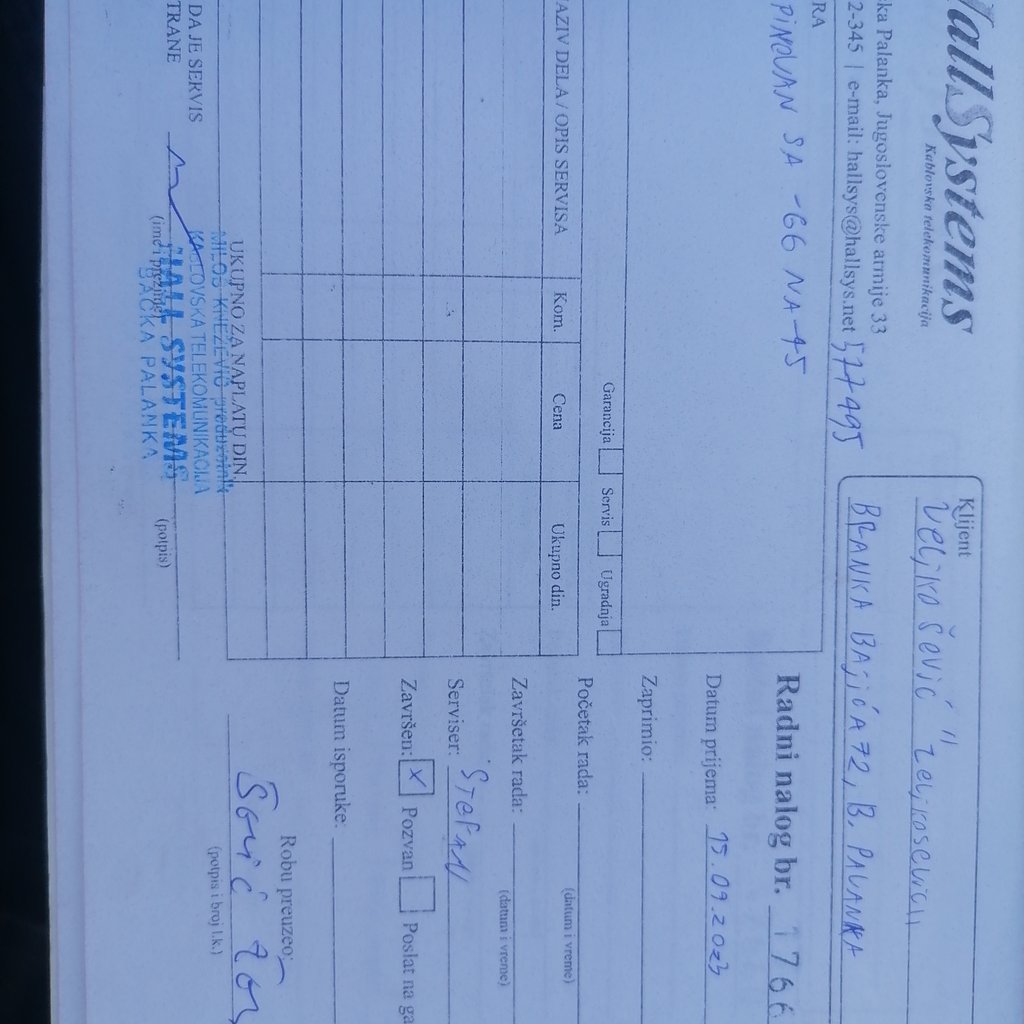 HallSystems
Kablovska telekomunikacija
ka Palanka, Jugoslovenske armije 33
2-345 | e-mail: hallsys@hallsys.net 577495
Klijent
VELJKOŠEVIĆ "
BRANKA BAJIĆA 72, B. PALANKA
RA
SA -66 NA -45
Radni nalog br. 1766
Datum prijema: 15.09.2023
Zaprimio:
Garancija
Servis
Ugradnja
AZIV DELA / OPIS SERVISA
Kom.
Cena
Ukupno din.
Početak rada:
(datum i vreme)
Završetak rada:
(datum i vreme)
Serviser: STEFAN
Završen: X Pozvan
Poslat na ga
Datum isporuke:
UKUPNO ZA NAPLATU DIN.
Robu preuzeo:
(potpis i broj l.k.)
DA JE SERVIS
TRANE
(ime i prezime)
(potpis)
MILOŠ KNEŽEVIĆ preduzetnik
KABLOVSKA TELEKOMUNIKACIJA
HALL SYSTEMS
BAČKA PALANKA